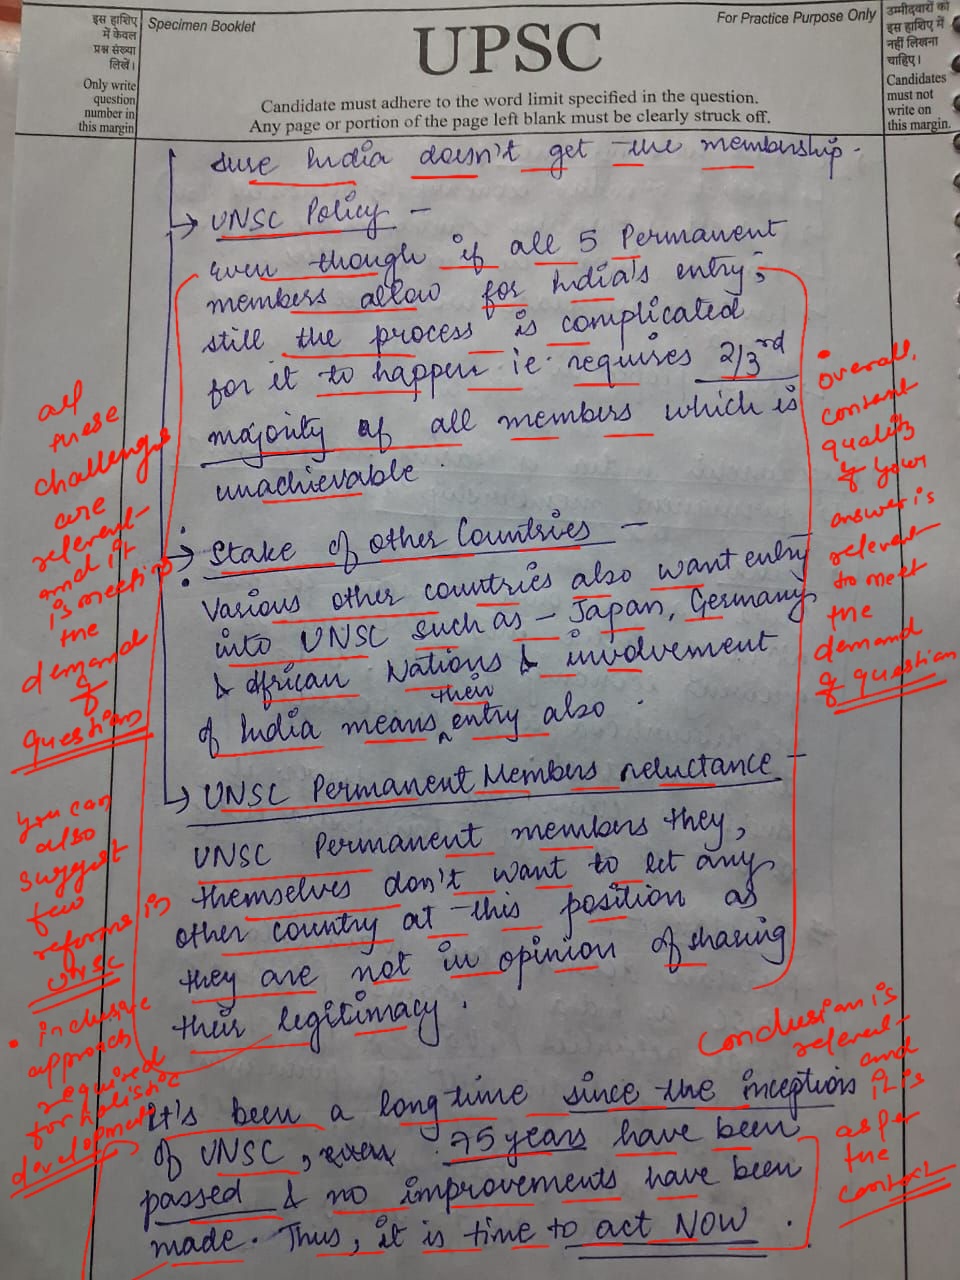 इस हाशिए
में केवल
प्रश्न संख्या
लिखें।
Only write
question
number in
this margin
Specimen Booklet
For Practice Purpose Only
UPSC
Candidate must adhere to the word limit specified in the question.
Any page or portion of the page left blank must be clearly struck off.
उम्मीदवारों को
इस हाशिए में
नहीं लिखना
चाहिए।
Candidates
must not
write on
this margin.
sure India doesn't get the membership.
→ UNSC Policy –
Even though if all 5 Permanent
members allow for India's entry,
still the process is complicated
for it to happen ie. requires 2/3rd
majority of all members which is
unachievable.
→ Stake of other Countries –
Various other countries also want entry
into UNSC such as – Japan, Germany
& African Nations & involvement
of India means their entry also.
→ UNSC Permanent Members reluctance –
UNSC Permanent members they,
themselves don't want to let any
other country at this position as
they are not in opinion of sharing
their legitimacy.
It's been a long time since the inception
of UNSC, 75 years have been
passed & no improvements have been
made. Thus, it is time to act NOW.
all
these
challenges
are
relevent
and it
is meeting
the
demand
of
question
you can
also
suggest
few
reforms in
UNSC
• inclusive
approach
required
for holistic
development
• overall
content
quality
of your
answer is
relevent
to meet
the
demand
of question
Conclusion is
relevent
and
it is
as per
the
context